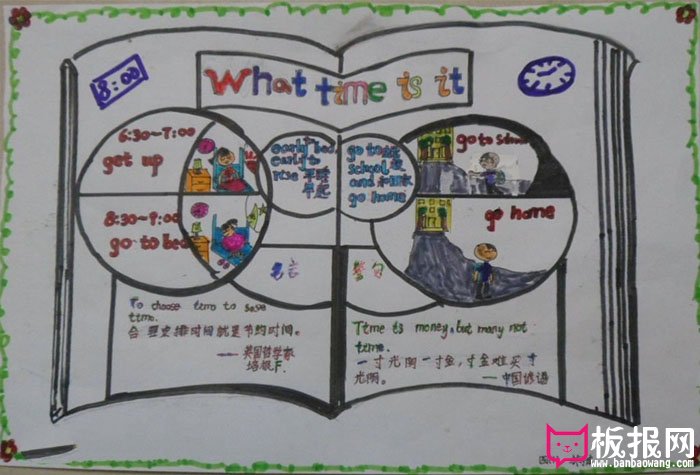 8:00
What time is it
6:30~7:00
get up
8:30~9:00
go to bed
early bed
early to
rise 早睡
早起
go to
school
and
go home
go to school
go home
名言
警句
To choose time to save
time.
合理安排时间就是节约时间。
——英国哲学家
培根.F.
Time is money, but many not
time.
一寸光阴一寸金,寸金难买寸
光阴。
——中国谚语
板报网
www.banbaowang.com